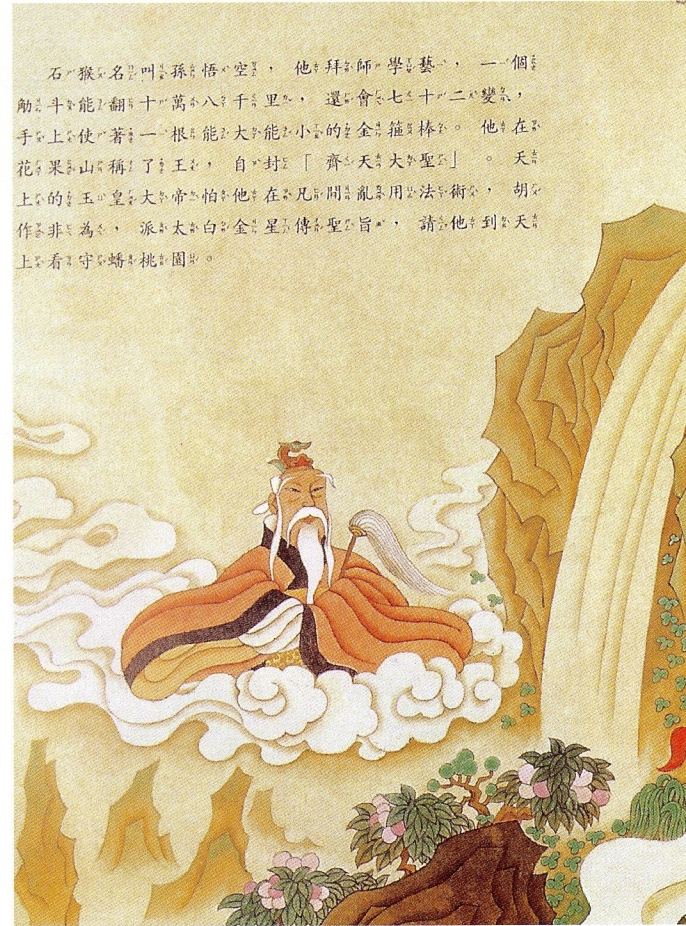 石猴名叫孫悟空，他拜師學藝，一個
觔斗能翻十萬八千里，還會七十二變，
手上使著一根能大能小的金箍棒。他在
花果山稱了王，自封「齊天大聖」。天
上的玉皇大帝怕他在凡間亂用法術，胡
作非為，派太白金星傳聖旨，請他到天
上看守蟠桃園。